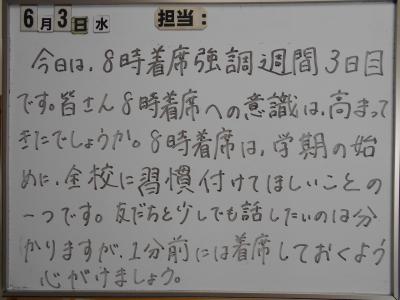 6月3日水 担当:
今日は、8時着席強調週間3日目
です。皆さん8時着席への意識は、高まって
きたでしょうか。8時着席は、学期の始
めに、全校に習慣付けてほしいことの
一つです。友だちと少しでも話したいのは分
かりますが、1分前には着席しておくよう
心がけましょう。